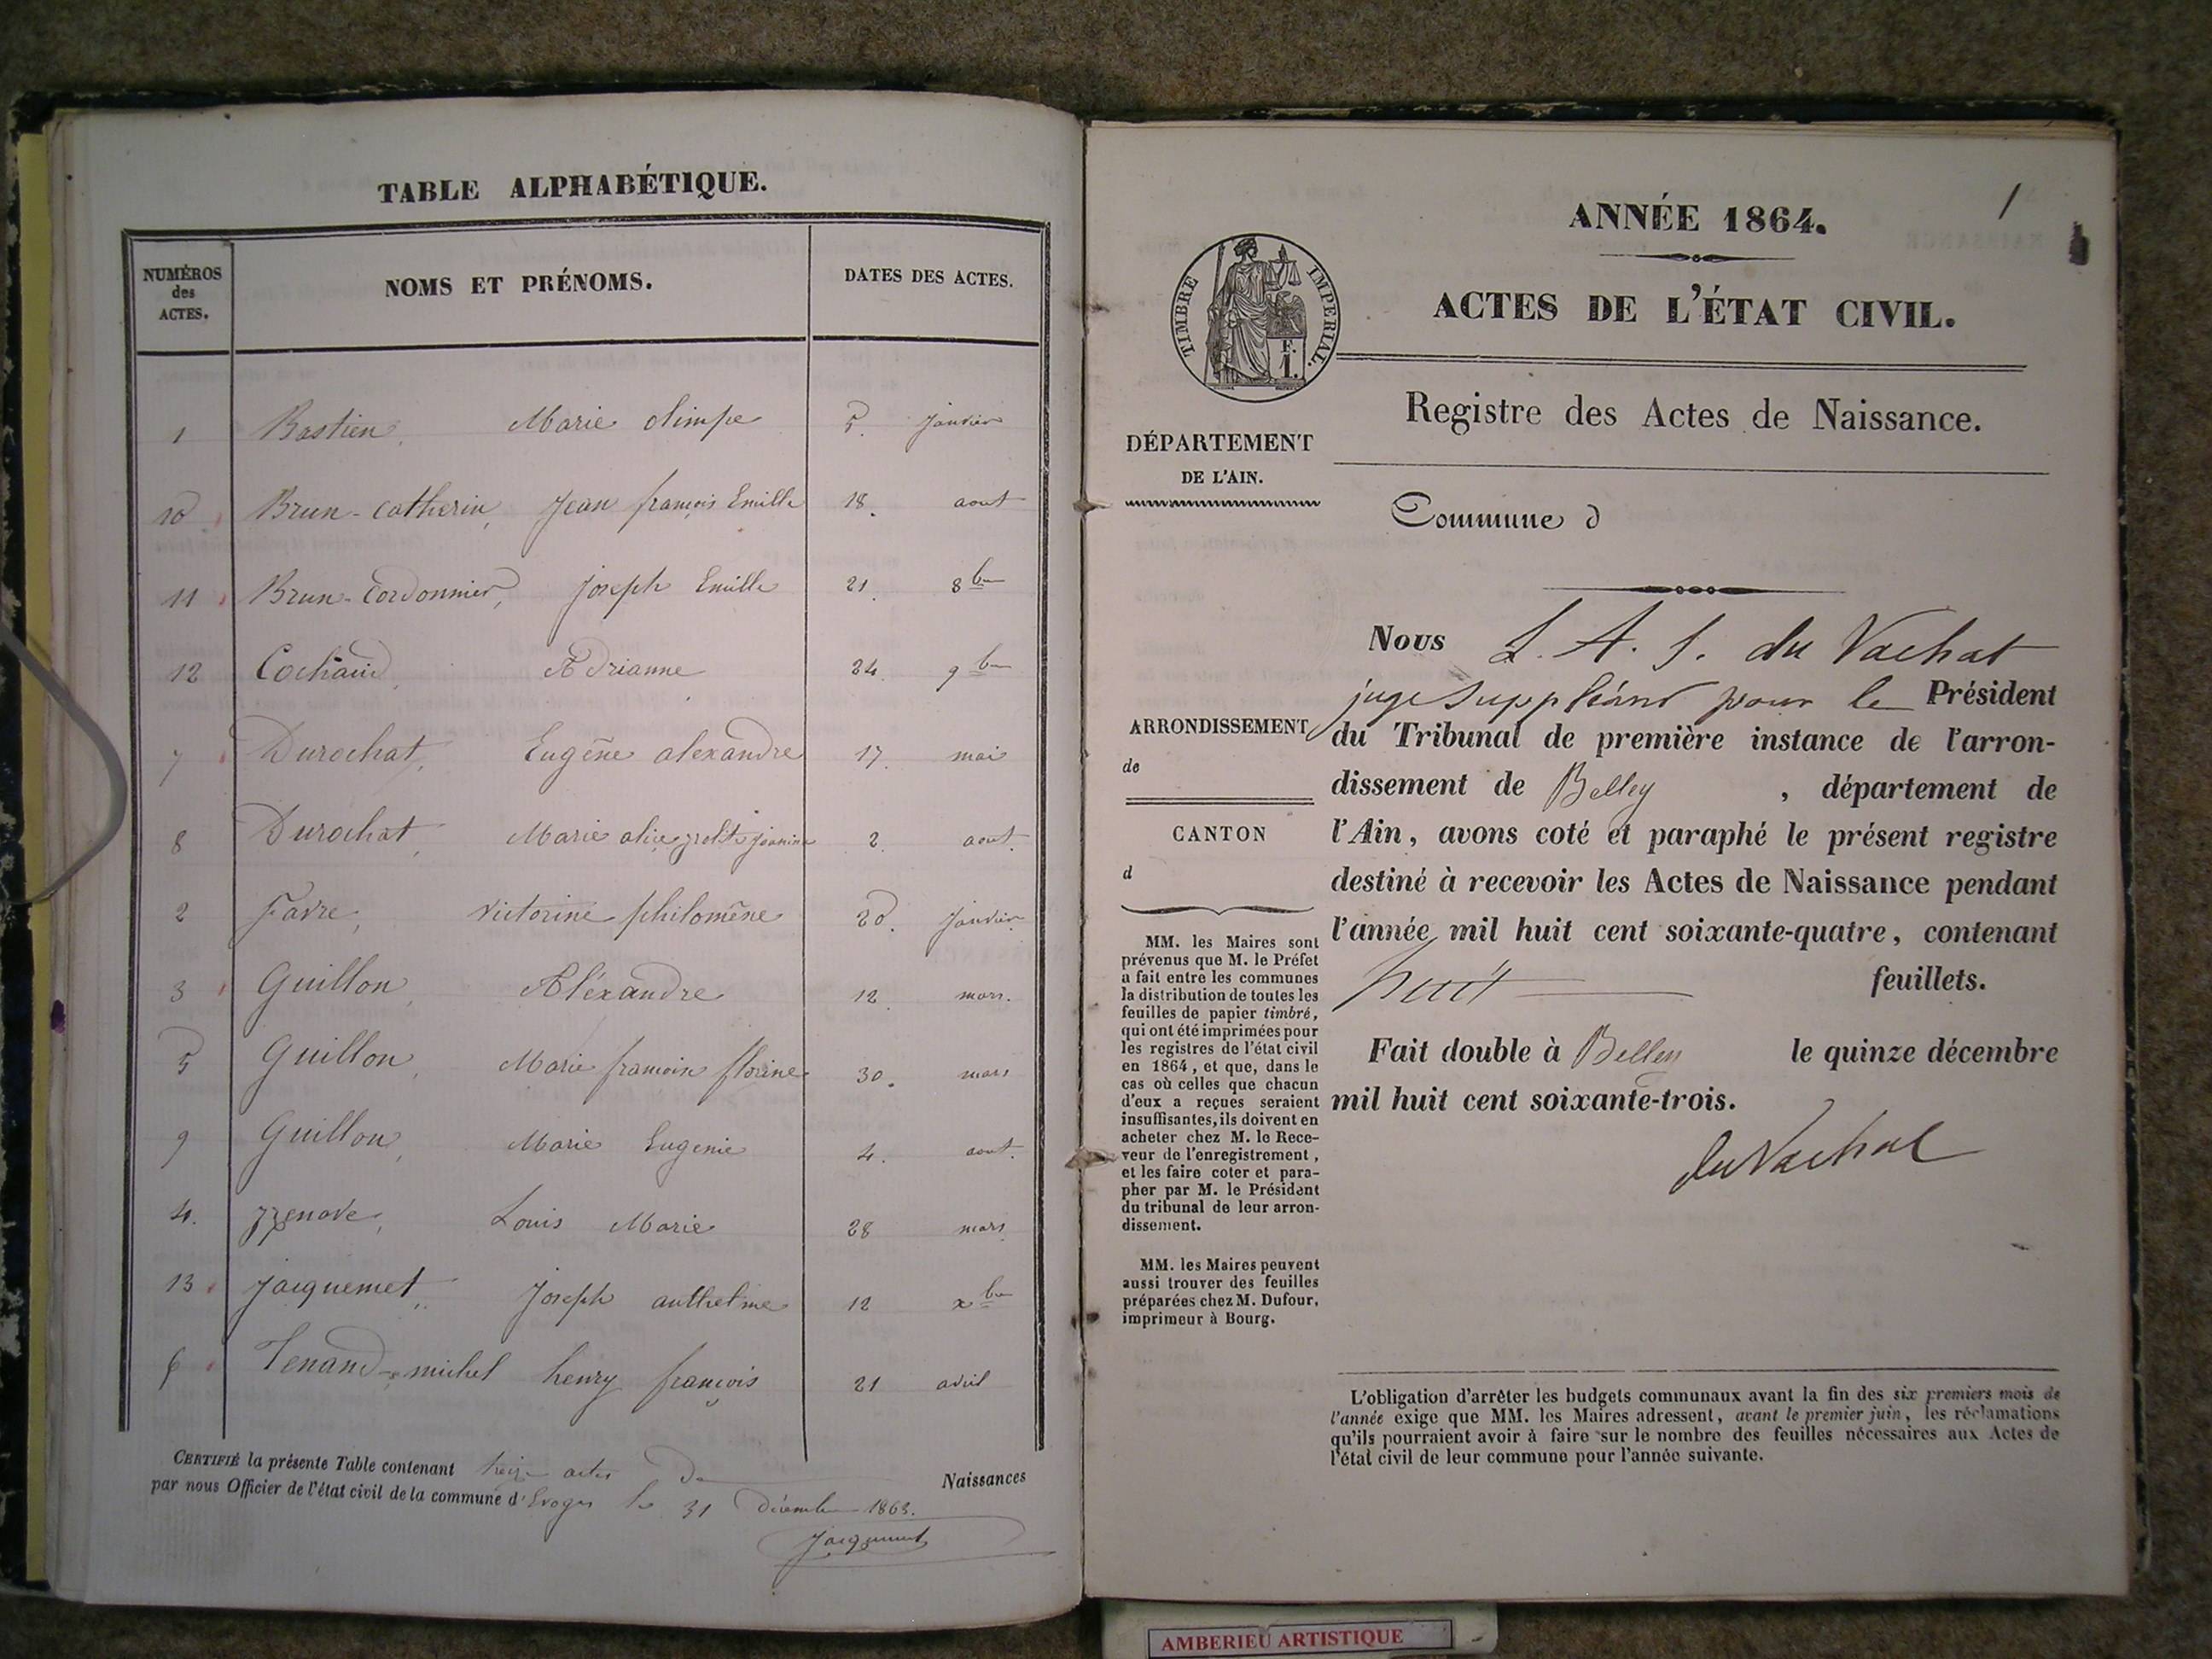 TABLE ALPHABÉTIQUE.
NUMÉROS des ACTES. NOMS ET PRÉNOMS. DATES DES ACTES.
1 Bastien, Marie olimpe 5. janvier
10 Brun-catherin, Jean françois Emille 18. aout
11 Brun-Cordonnier, joseph Emille 21. 8bre
12 Cochaud, Adrianne 24. 9bre
7 Durochat, Eugène alexandre 17. mai
8 Durochat, Marie alice 2. aout.
2 Favre, victorine philomène 20. janvier
3 Guillon, Aléxandre 12. mars.
5 Guillon, Marie florine 30. mars
9 Guillon, Marie Eugenie 4. aout.
4. Louis Marie 28 mars
13 jacquemet, Joseph anthelme 12 xbre
6 Tenand-michel henry françois 21 avril
CERTIFIÉ la présente Table contenant treize actes de Naissances
par nous Officier de l'état civil de la commune d'Evoges le 31 Décembre 1863.
Jacquemet
1
ANNÉE 1864.
TIMBRE IMPERIAL.
F.
1.
ACTES DE L'ÉTAT CIVIL.
Registre des Actes de Naissance.
DÉPARTEMENT
DE L'AIN.
Commune d
ARRONDISSEMENT
de
CANTON
d
MM. les Maires sont
prévenus que M. le Préfet
a fait entre les communes
la distribution de toutes les
feuilles de papier timbré,
qui ont été imprimées pour
les registres de l'état civil
en 1864, et que, dans le
cas où celles que chacun
d'eux a reçues seraient
insuffisantes, ils doivent en
acheter chez M. le Rece-
veur de l'enregistrement,
et les faire coter et para-
pher par M. le Président
du tribunal de leur arron-
dissement.
MM. les Maires peuvent
aussi trouver des feuilles
préparées chez M. Dufour,
imprimeur à Bourg.
Nous L. A. J. du Vachat
juge suppléant pour le Président
du Tribunal de première instance de l'arron-
dissement de Belley, département de
l'Ain, avons coté et paraphé le présent registre
destiné à recevoir les Actes de Naissance pendant
l'année mil huit cent soixante-quatre, contenant
huit feuillets.
Fait double à Belley le quinze décembre
mil huit cent soixante-trois.
du Vachat
L'obligation d'arrêter les budgets communaux avant la fin des six premiers mois de
l'année exige que MM. les Maires adressent, avant le premier juin, les réclamations
qu'ils pourraient avoir à faire sur le nombre des feuilles nécessaires aux Actes de
l'état civil de leur commune pour l'année suivante.
AMBERIEU ARTISTIQUE